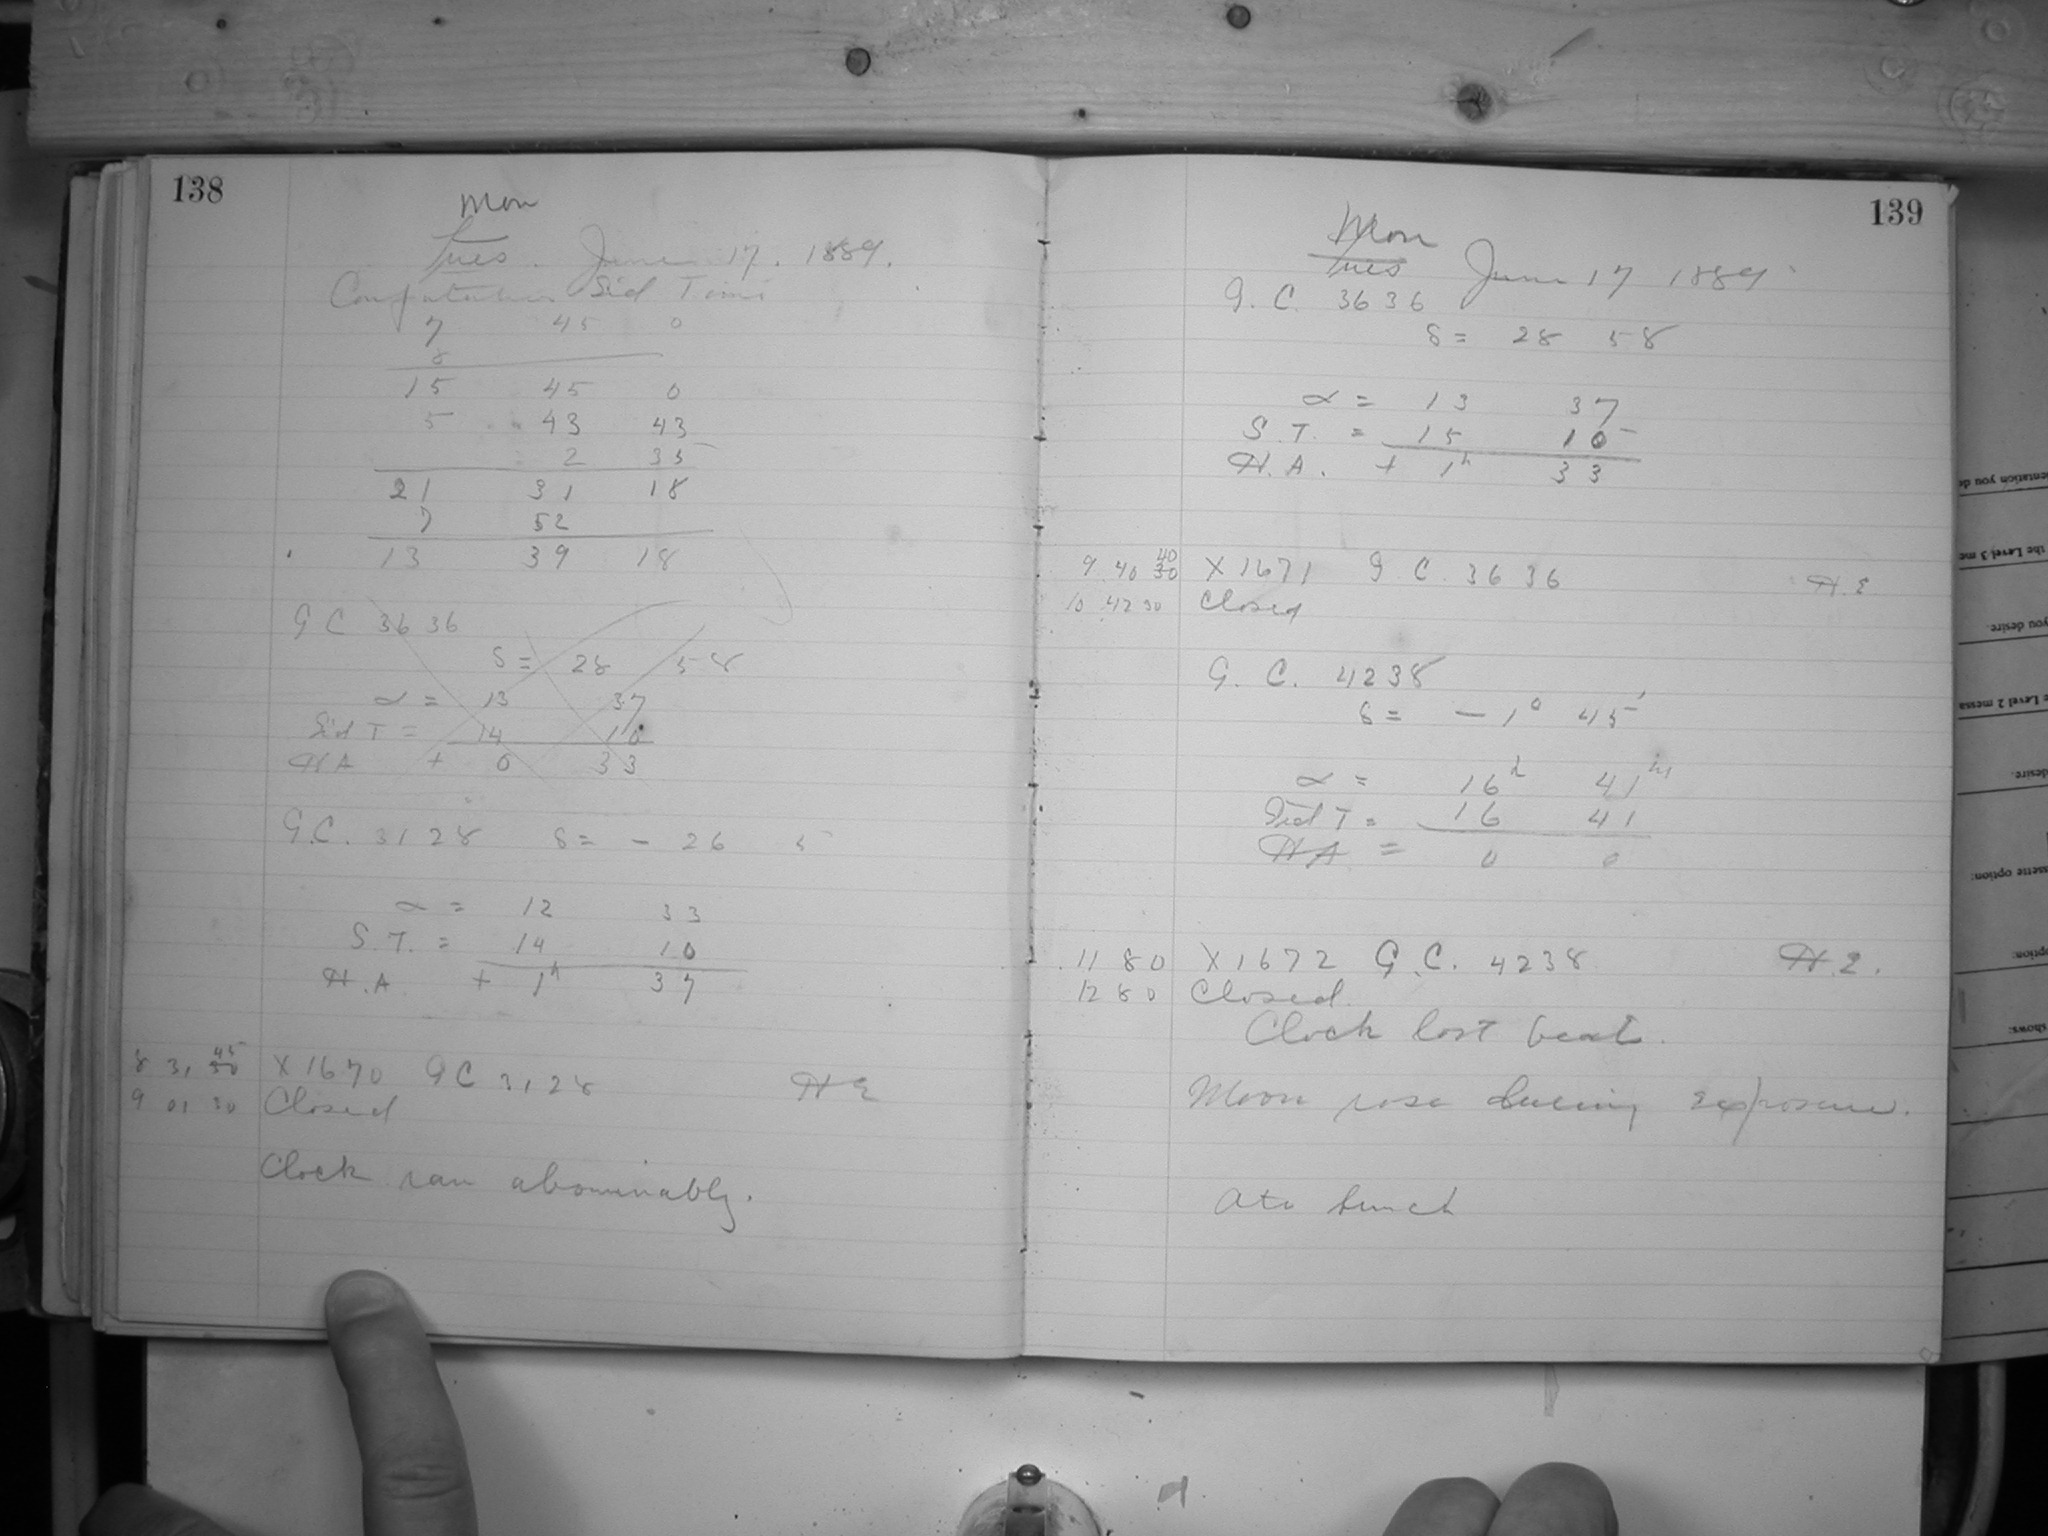 138
Mon
Tues. June 17. 1889.
Computation Sid Time
7 45 0
8
15 45 0
5 43 43
2 35
21 31 18
7 52
13 39 18
G C 3636
δ = 28 58
α = 13 37
Sid T = 14 10
HA + 0 33
G.C. 3128 δ = - 26 5
α = 12 33
S.T. = 14 10
H.A + 1h 37
8 31 45
30 X1670 GC 3128 H E
9 01 30 Closed
Clock ran abominably.
139
Mon
Tues June 17 1889
G.C. 3636
δ = 28 58
α = 13 37
S.T. = 15 10
H.A. + 1h 33
40
9 40 30 X1671 G C. 3636 H.E.
10 42 30 Closed
G. C. 4238
δ = - 1° 45'
α = 16h 41m
Sid T = 16 41
HA = 0 0
11 8 0 X1672 G.C. 4238 H.E.
12 8 0 Closed.
Clock lost beat.
Moon rose during exposure.
Ate lunch